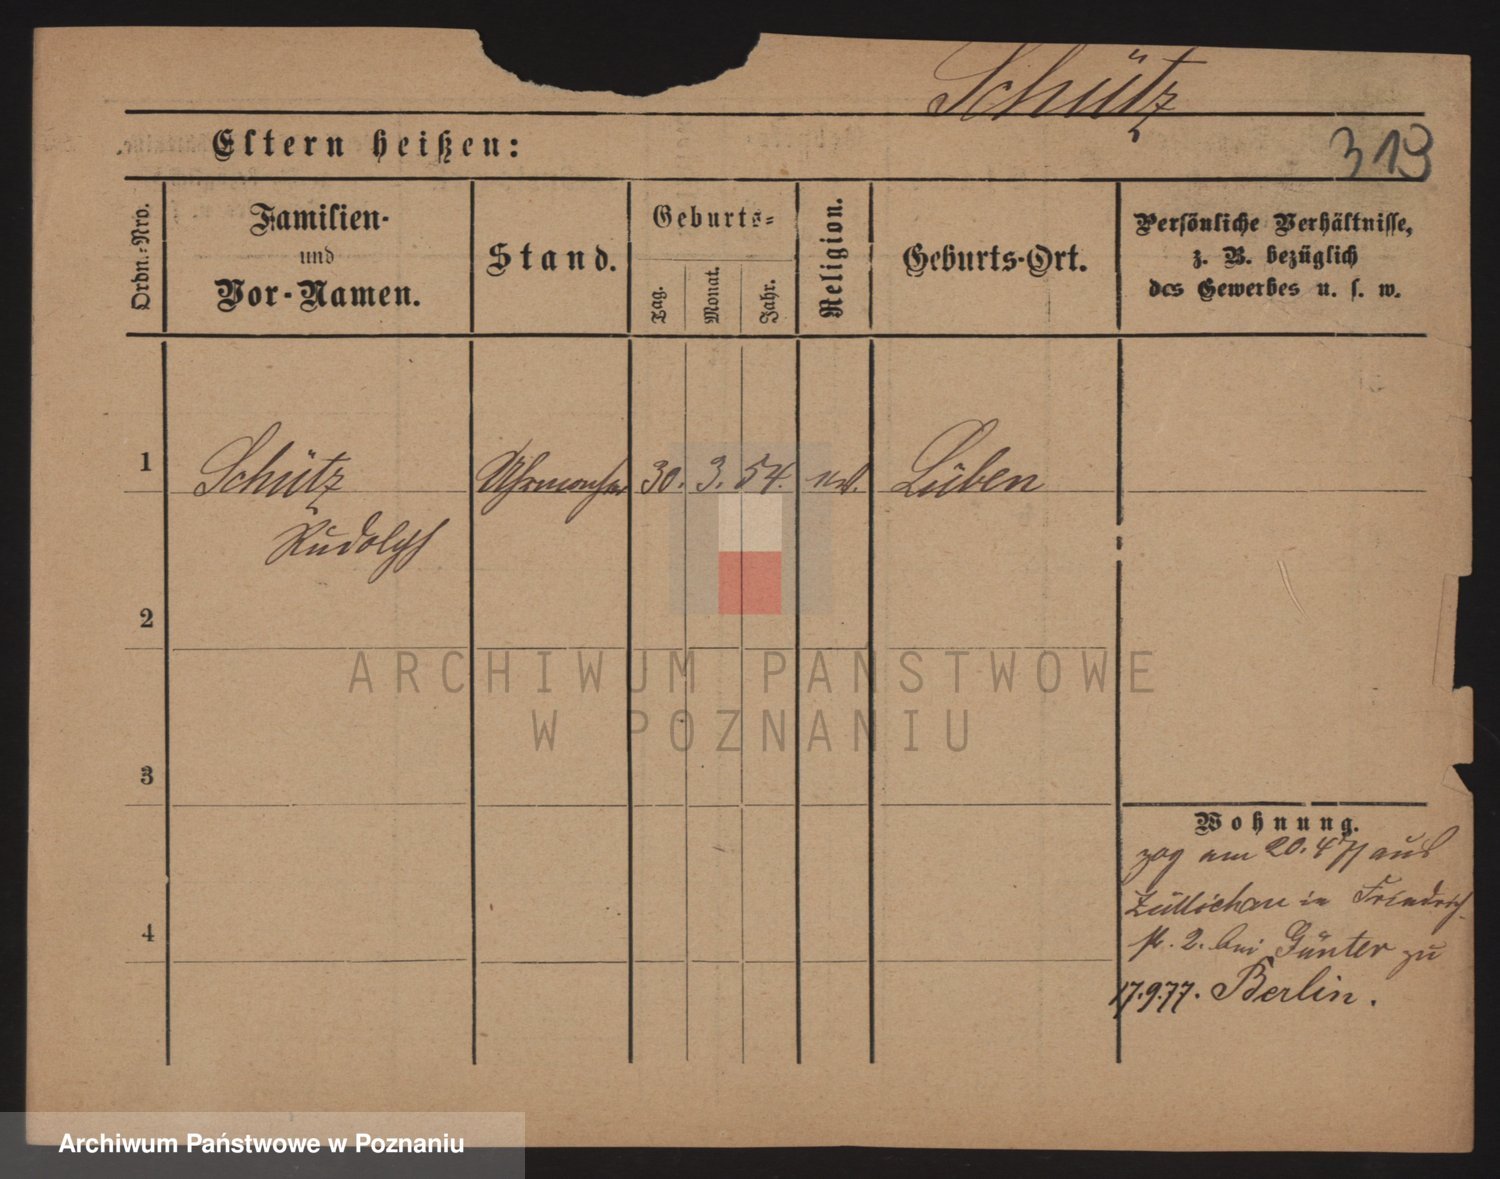 Schütz
Eltern heißen:
319
Ordn.-Nro.
Familien-
und
Vor-Namen.
Stand.
Geburts-
Tag.
Monat.
Jahr.
Religion.
Geburts-Ort.
Persönliche Verhältnisse,
z. B. bezüglich
des Gewerbes u. s. w.
1
Schütz
Rudolph
Uhrmacher
30. 3. 54.
Lüben
2
3
4
Wohnung.
zog am 20. 4 77 aus
Züllichau in Friedrich-
st. 2. bei Günter zu
17.9.77. Berlin.
ARCHIWUM PAŃSTWOWE
W POZNANIU
Archiwum Państwowe w Poznaniu